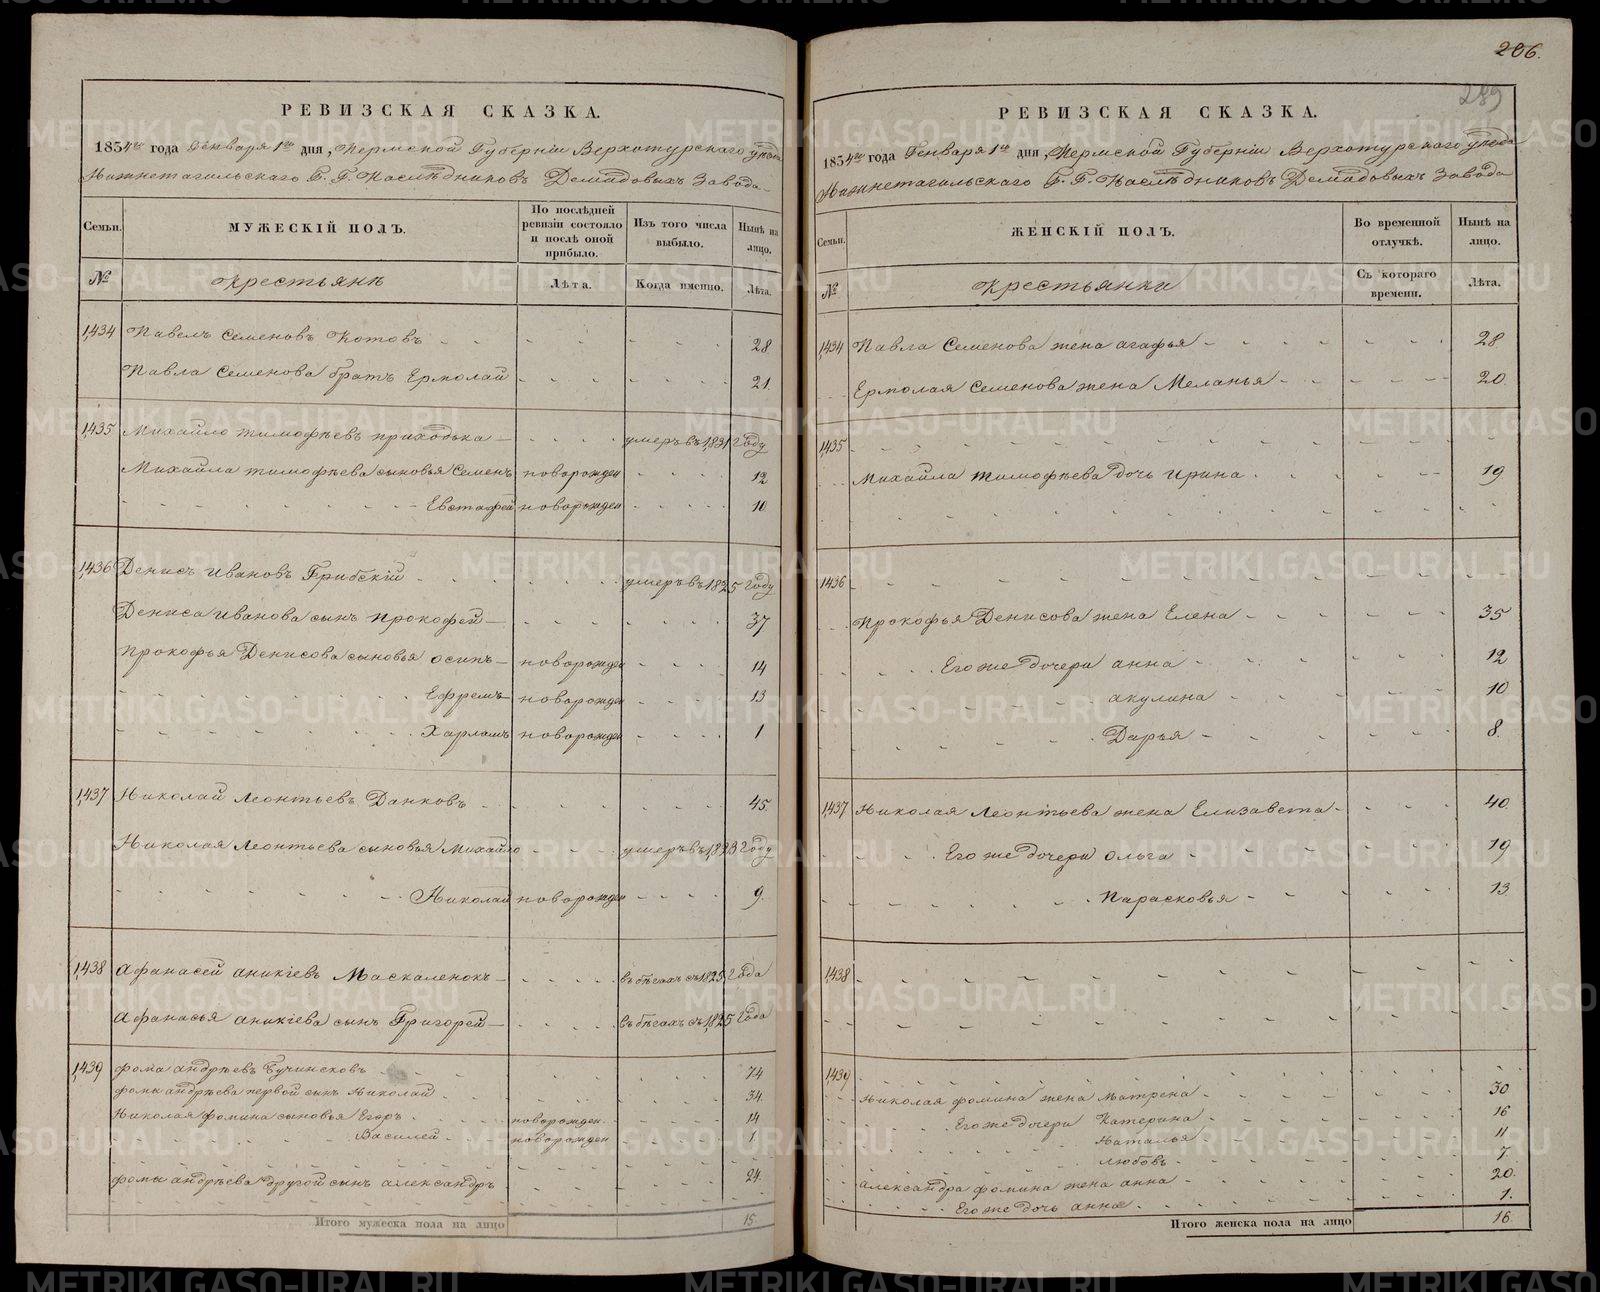 206.
289
РЕВИЗСКАЯ СКАЗКА.
1834го года Генваря 1го дня, Пермской Губернiи Верхотурскаго уѣзда
Нижнетагильскаго Г. Г. Наслѣдниковъ Демидовыхъ Завода
Семьи.
МУЖЕСКIЙ ПОЛЪ.
По послѣдней ревизiи состояло и послѣ оной прибыло.
Изъ того числа выбыло.
Нынѣ на лицо.
№
Крестьянъ
Лѣта.
Когда именно.
Лѣта.
1,434 Павелъ Семеновъ Котовъ 28
Павла Семенова братъ Ермолай 21.
1,435 Михайло Тимофѣевъ Приходька умеръ въ 1,831 году
Михайла Тимофѣева сыновья Семенъ новорожден 12
Евстафей новорожден 10
1,436 Денисъ Ивановъ Грибскiй умеръ въ 1,825 году
Дениса Иванова сынъ Прокофей 37
Прокофья Денисова сыновья Осипъ новорожден 14
Ефремъ новорожден 13
Харламъ новорожден 1
1,437 Николай Леонтьевъ Данковъ 45.
Николая Леонтьева сыновья Михайло умеръ въ 1,823 году
Николай новорожден 9.
1,438 Афанасей Аникiевъ Маскаленокъ въ бѣгахъ съ 1,825 года
Афанасья Аникiева сынъ Григорей въ бѣгахъ съ 1,825 года
1,439 Фома Андрѣевъ Бучинсковъ 74
Фомы Андрѣева первой сынъ Николай 34.
Николая Фомина сыновья Егоръ новорожден. 14
Василей новорожден 1
Фомы Андрѣева другой сынъ Александръ 24.
Итого мужеска пола на лицо 15.
РЕВИЗСКАЯ СКАЗКА.
1834го года Генваря 1го дня, Пермской Губернiи Верхотурскаго уѣзда
Нижнетагильскаго Г. Г. Наслѣдниковъ Демидовыхъ Завода
Семьи.
ЖЕНСКIЙ ПОЛЪ.
Во временной отлучкѣ.
Нынѣ на лицо.
№
Крестьянки
Съ котораго времени.
Лѣта.
1,434 Павла Семенова жена Агафья 28
Ермолая Семенова жена Меланья 20.
1,435
Михайла Тимофѣева дочь Ирина 19
1436
Прокофья Денисова жена Елена 35
Его же дочери Анна 12
Акулина 10
Дарья 8.
1,437 Николая Леонтьева жена Елизавета 40.
Его же дочери Ольга 19
Парасковья 13.
1,438
1,439
Николая Фомина жена Матрена 30
Его же дочери Катерина 16
Наталья 11
Любовь 7.
Александра Фомина жена Анна 20.
Его же дочь Анна 1.
Итого женска пола на лицо 16.
METRIKI.GASO-URAL.RU